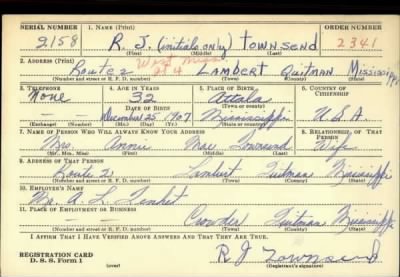 SERIAL NUMBER 1. NAME (Print) ORDER NUMBER
2158 R. J. (initials only) townsend 2341
(First) (Middle) (Last)
2. ADDRESS (Print)
Route 2 LAMBERT Quitman Mississippi
(Number and street or R. F. D. number) (Town) (County) (State)
3. TELEPHONE 4. AGE IN YEARS 5. PLACE OF BIRTH 6. COUNTRY OF CITIZENSHIP
None 32 Attala
DATE OF BIRTH
December 25 1907 Mississippi U.S.A.
(Exchange) (Number) (Mo.) (Day) (Yr.) (State or country)
7. NAME OF PERSON WHO WILL ALWAYS KNOW YOUR ADDRESS 8. RELATIONSHIP OF THAT PERSON
Mrs. Annie Mae Townsend Wife
(Mr., Mrs., Miss) (First) (Middle) (Last)
9. ADDRESS OF THAT PERSON
Route 2 Lambert Quitman Mississippi
(Number and street or R. F. D. number) (Town) (County) (State)
10. EMPLOYER'S NAME
Mr. A. L.
11. PLACE OF EMPLOYMENT OR BUSINESS
Crowder Quitman Mississippi
(Number and street or R. F. D. number) (Town) (County) (State)
I AFFIRM THAT I HAVE VERIFIED ABOVE ANSWERS AND THAT THEY ARE TRUE.
REGISTRATION CARD
D. S. S. Form 1 (over) R J Townsend
(Registrant's signature)